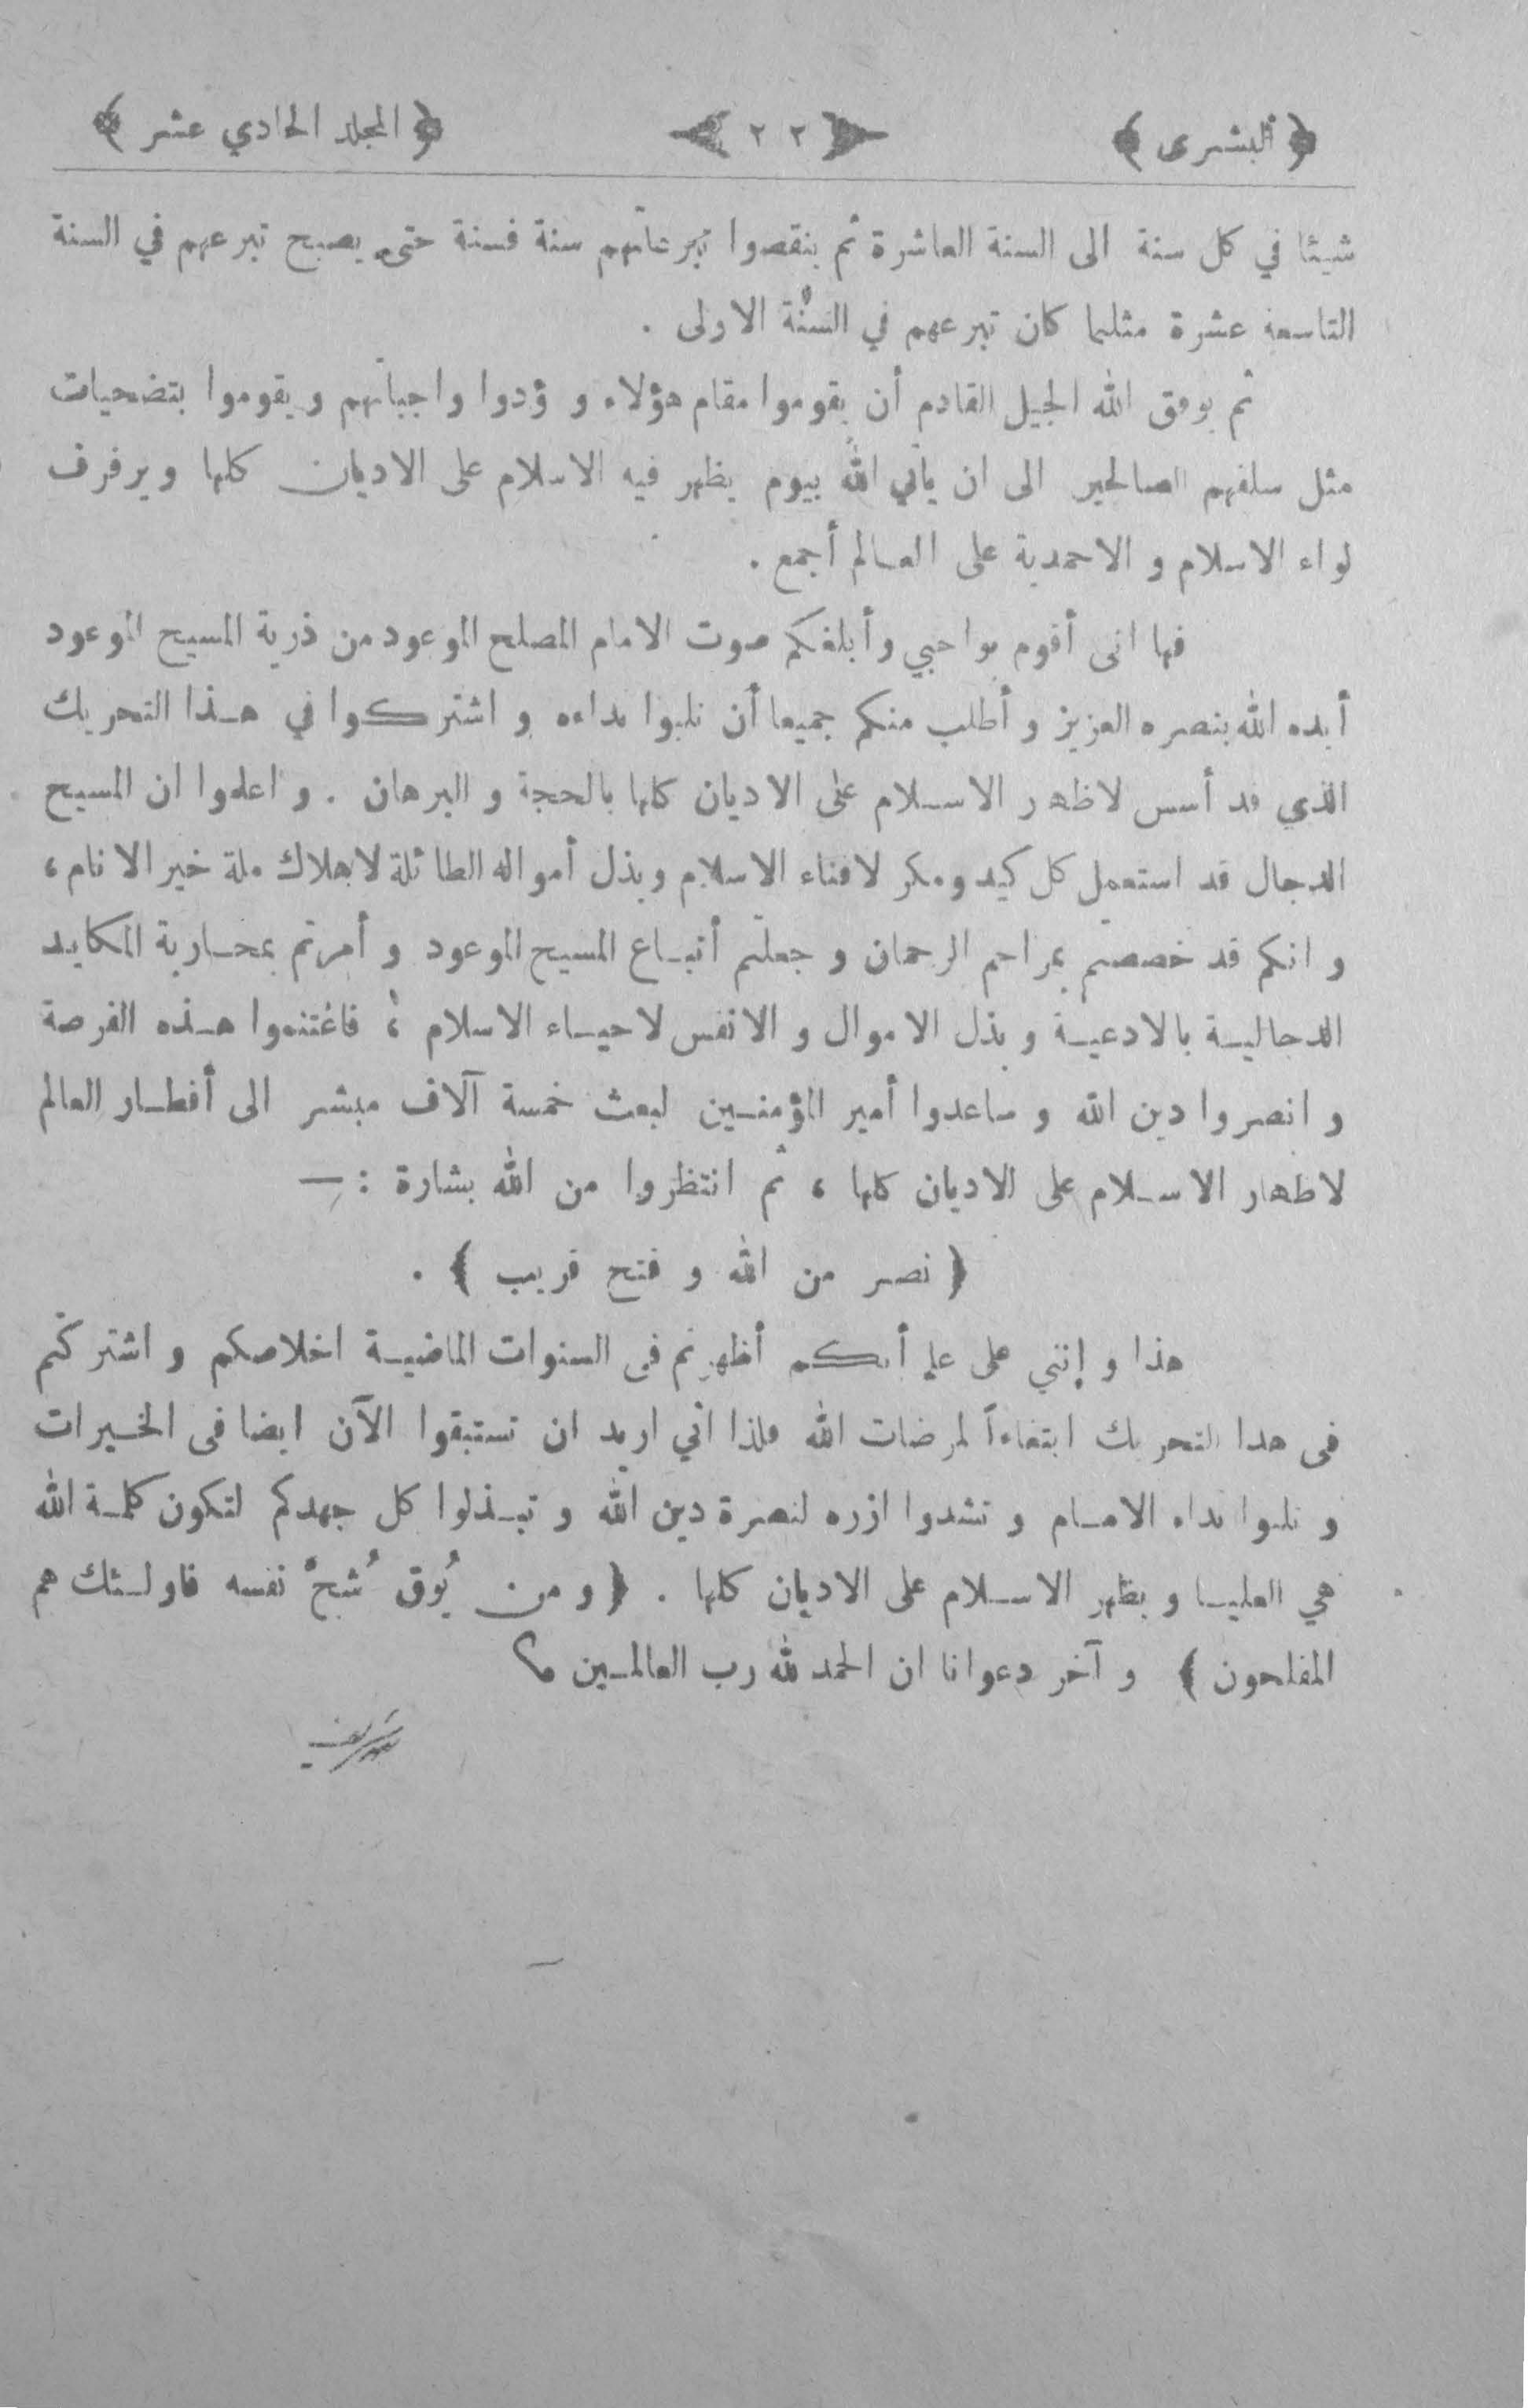 ﴿ البشرى ﴾ ٢٢ ﴿ المجلد الحادي عشر ﴾
شيئا في كل سنة الى السنة العاشرة ثم ينقصوا تبرعاتهم سنة فسنة حتى يصبح تبرعهم في السنة
التاسعة عشرة مثلما كان تبرعهم في السنة الاولى .
ثم يوفق الله الجيل القادم أن يقوموا مقام هؤلاء و ؤدوا واجباتهم و يقوموا بتضحيات
مثل سلفهم الصالحين الى ان يأتي الله بيوم يظهر فيه الاسلام على الاديان كلها ويرفرف
لواء الاسلام و الاحمدية على العالم أجمع .
فها انى أقوم بواجبي وأبلغكم صوت الامام المصلح الموعود من ذرية المسيح الموعود
أيده الله بنصره العزيز و أطلب منكم جميعا أن تلبوا نداءه و اشتركوا في هذا التحريك
الذي قد أسس لاظهار الاسلام على الاديان كلها بالحجة و البرهان . و اعلموا ان المسيح
الدجال قد استعمل كل كيد ومكر لافناء الاسلام وبذل أمواله الطائلة لاهلاك ملة خير الانام ،
و انكم قد خصصتم بمراحم الرحمان و جعلتم أتباع المسيح الموعود و أمرتم بمحاربة المكايد
الدجالية بالادعية و بذل الاموال و الانفس لاحياء الاسلام ، فاغتنموا هذه الفرصة
و انصروا دين الله و ساعدوا أمير المؤمنين لبعث خمسة آلاف مبشر الى أقطار العالم
لاظهار الاسلام على الاديان كلها ، ثم انتظروا من الله بشارة : —
﴿ نصر من الله و فتح قريب ﴾ .
هذا و إنني على علم أنكم أظهرتم فى السنوات الماضية اخلاصكم و اشتركتم
فى هذا التحريك ابتغاءاً لمرضات الله فلذا اني اريد ان تستبقوا الآن ايضا فى الخيرات
و تلبوا نداء الامام و تشدوا ازره لنصرة دين الله و تبذلوا كل جهدكم لتكون كلمة الله
هي العليا و يظهر الاسلام على الاديان كلها . ﴿ و من يُوق شُحَّ نفسه فاولئك هم
المفلحون ﴾ و آخر دعوانا ان الحمد لله رب العالمين